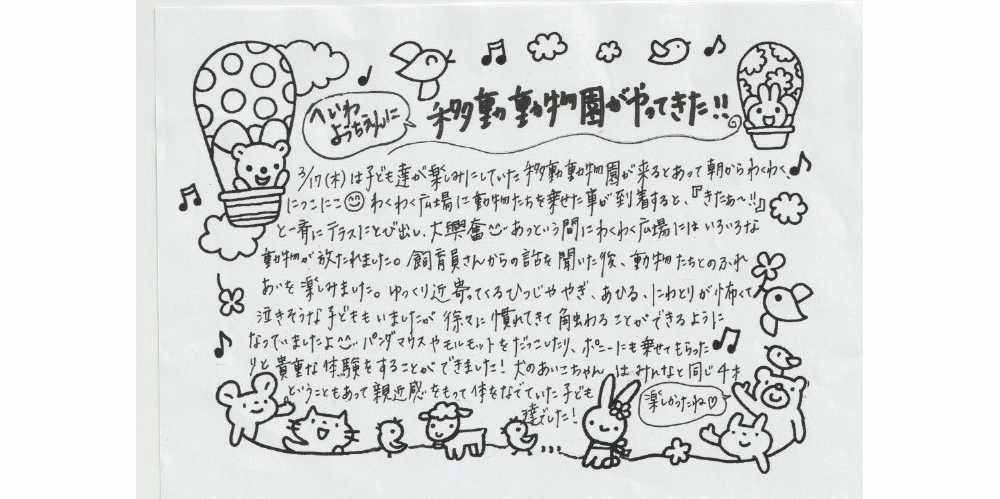 へいわ
ようちえんに
移動動物園がやってきた!!
3/17(木)は子ども達が楽しみにしていた移動動物園が来るとあって朝からわくわく、
にっこにこ わくわく広場に動物たちを乗せた車が到着すると、『きたぁ〜!!』
と一斉にテラスにとび出し、大興奮 あっという間にわくわく広場にはいろいろな
動物が放たれました。飼育員さんからの話を聞いた後、動物たちとのふれ
あいを楽しみました。ゆっくり近寄ってくるひつじややぎ、あひる、にわとりが怖くて
泣きそうな子どももいましたが徐々に慣れてきて触わることができるように
なっていましたよ パンダマウスやモルモットをだっこしたり、ポニーにも乗せてもらった
りと貴重な体験をすることができました!犬のあいこちゃんはみんなと同じ4才
ということもあって親近感をもって体をなでていた子ども
達でした!
楽しかったね♡